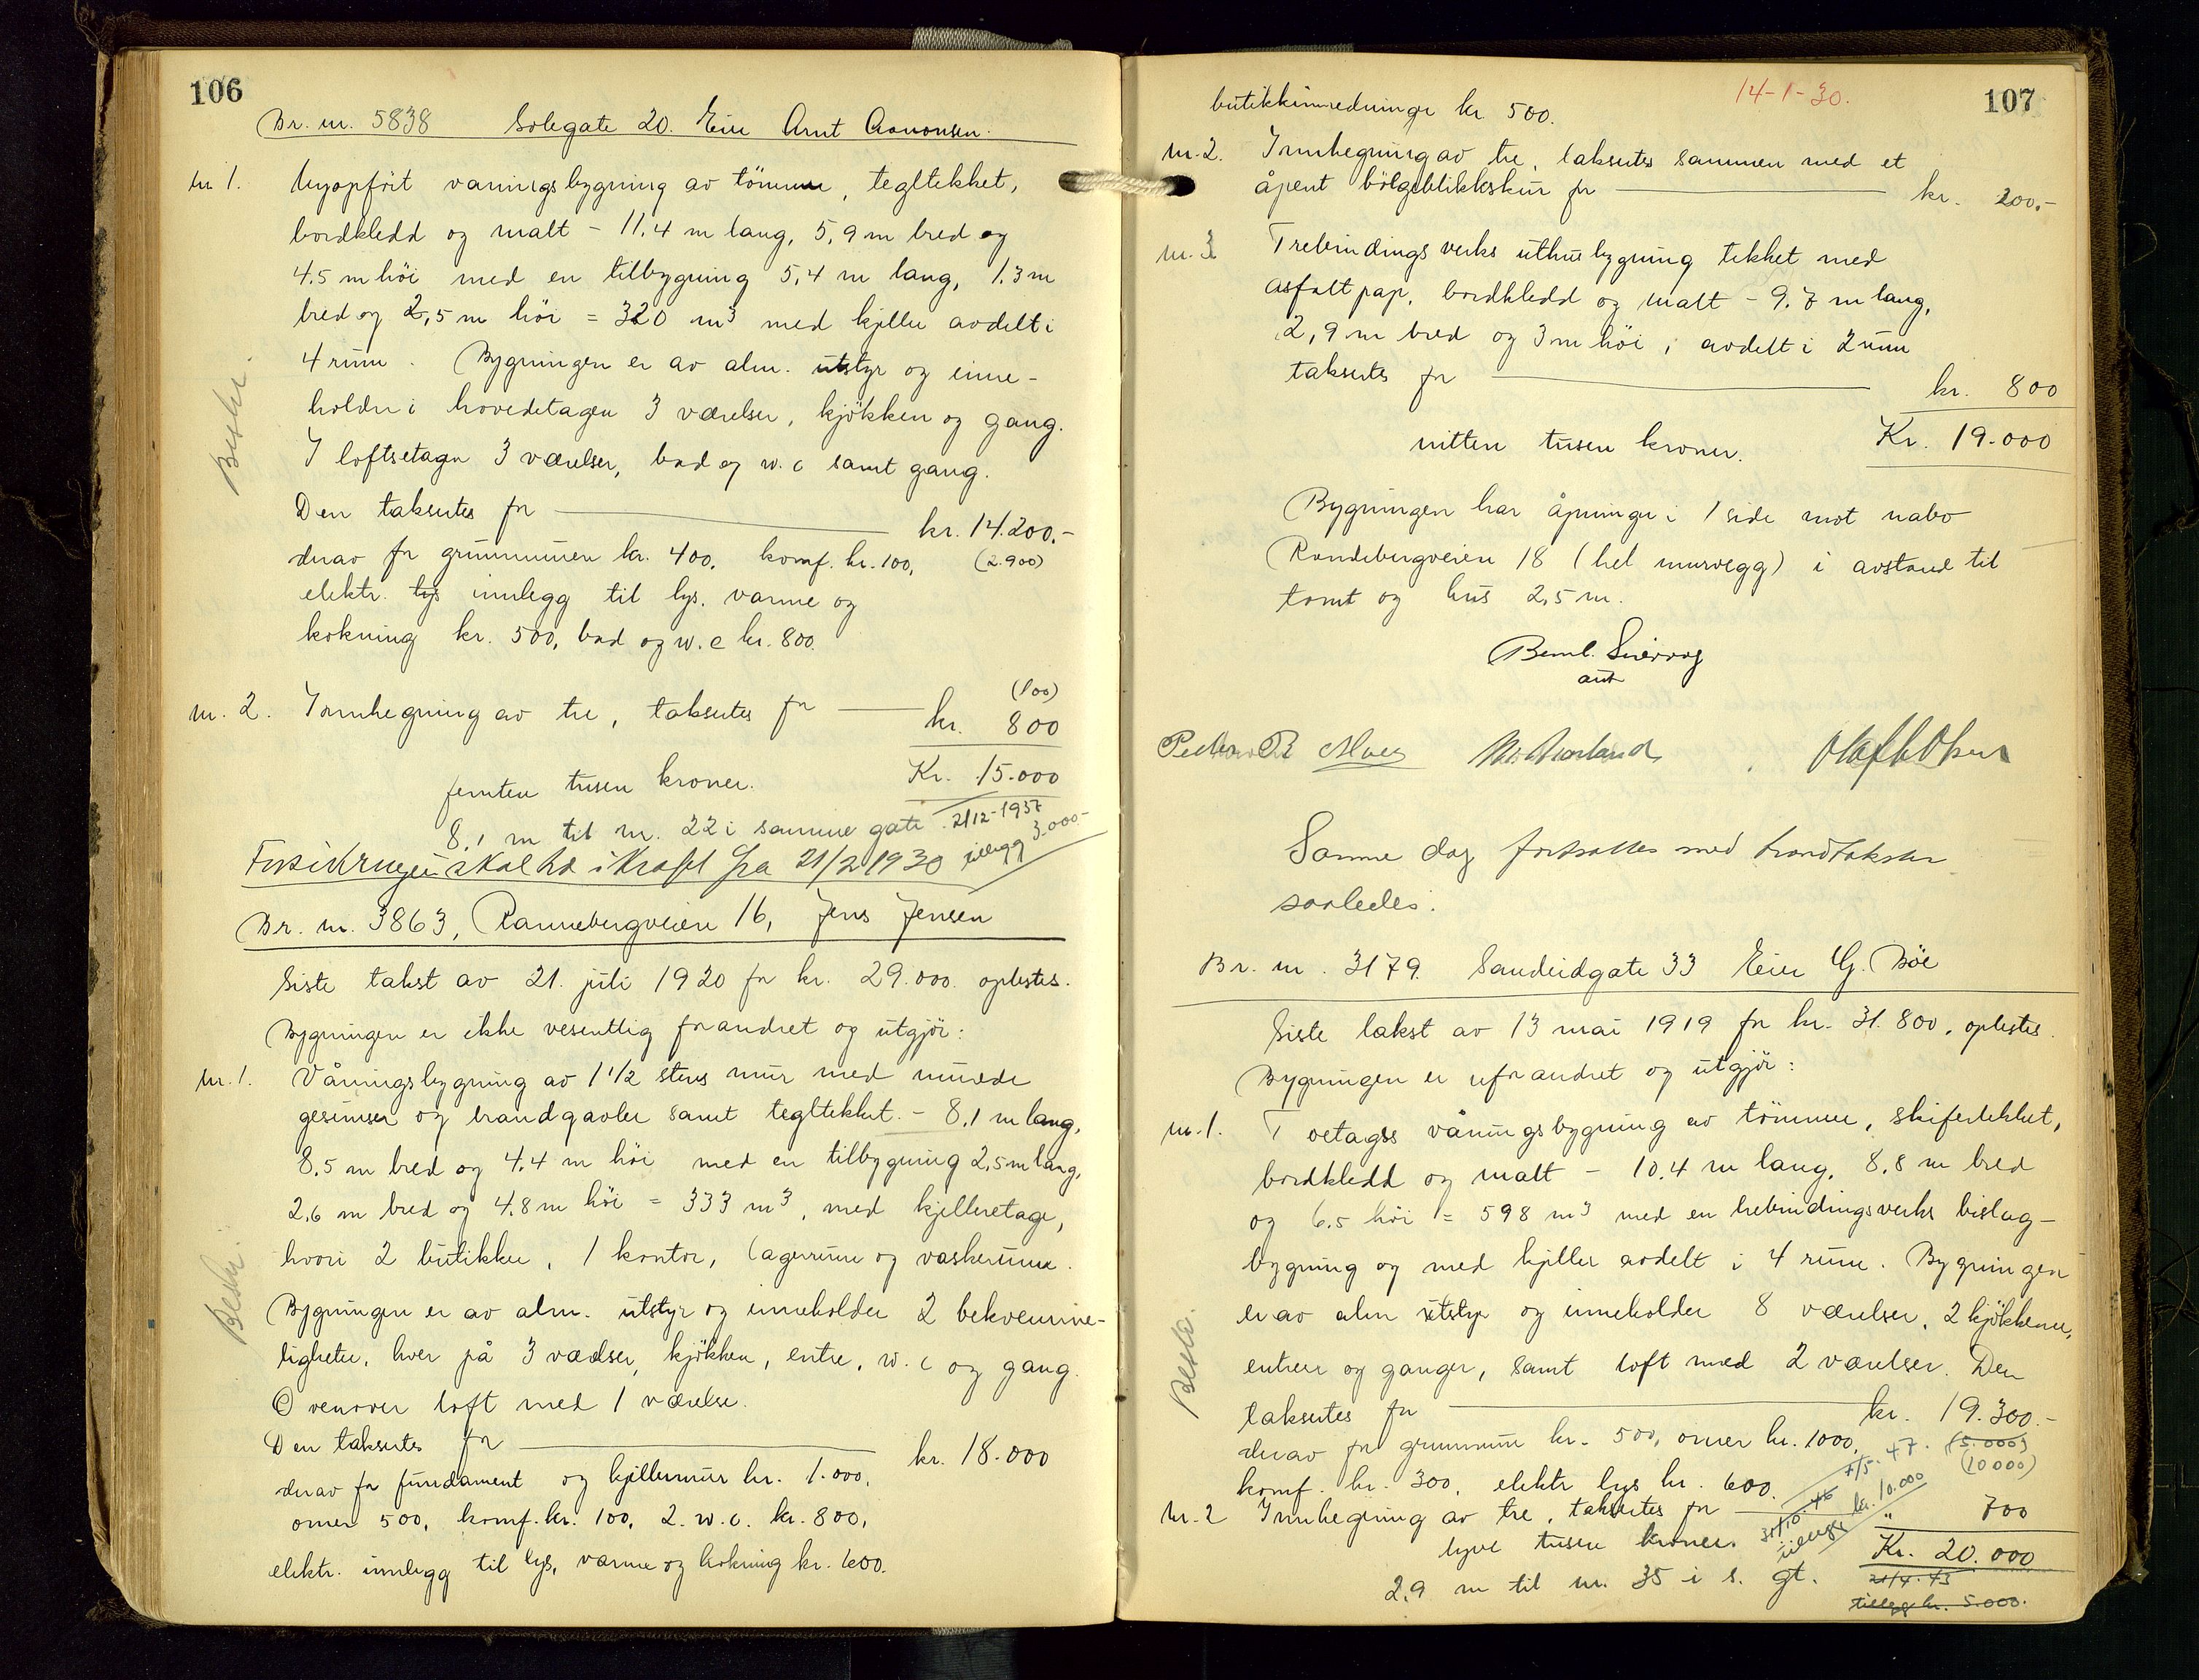 106
Br. nr. 5838 Solegate 20. Eier Arnt Aanonsen.
nr 1. Nyopført vaningsbygning av tømmer, tegltekket,
bordkledd og malt - 11,4 m lang, 5,9 m bred og
4.5 m høi med en tilbygning 5,4 m lang, 1,3 m
bred og 2,5 m høi = 320 m³ med kjeller avdelt i
4 rum. Bygningen er av alm. utstyr og inne-
holder i hovedetagen 3 værelser, kjøkken og gang.
I loftsetagen 3 værelser, bad og w.c samt gang.
Den takseres for kr. 14.200.-
derav for grunnmuren kr. 400, komf. kr. 100, (2.900)
elektr. lys innlegg til lys, varme og
kokning kr. 500, bad og w.c kr. 800.
Beskr.
nr. 2. Innhegning av tre, takseres for kr. 800
(100)
femten tusen kroner. Kr. 15.000
8,1 m til nr. 22 i samme gate 21/12-1937
tillegg 3.000.-
Forsikringen skal tre i kraft fra 21/2 1930
Br. nr. 3863, Rannebergveien 16, Jens Jensen
Siste takst av 21. juli 1920 for kr. 29.000. oplestes.
Bygningen er ikke vesentlig forandret og utgjør:
nr. 1. Våningsbygning av 1 1/2 stens mur med murede
gesimser og brandgavler samt tegltekket. - 8,1 m lang,
8.5 m bred og 4.4 m høi med en tilbygning 2,5 m lang,
2.6 m bred og 4.8 m høi = 333 m³, med kjelleretage,
hvori 2 butikker, 1 kontor, lagerrum og vaskerum.
Bygningen er av alm. utstyr og inneholder 2 bekvemme-
ligheter, hver på 3 værelser, kjøkken, entre, w.c og gang.
Ovenover loft med 1 værelse.
Den takseres for kr. 18.000
derav for fundament og kjellermur kr. 1.000,
ovner 500, komf. kr. 100, 2 w.c. kr. 800,
elektr. innlegg til lys, varme og kokning kr. 600.
Beskr.
107
14-1-30.
butikkinnredninger kr 500.
nr. 2. Innhegning av tre, takseres sammen med et
åpent bølgeblikkskur for kr. 200.-
nr. 3 Trebindingsverks uthusbygning tekket med
asfaltpap, bordkledd og malt - 9.7 m lang,
2,9 m bred og 3 m høi, avdelt i 2 rum
takseres for kr. 800
nitten tusen kroner. Kr. 19.000
Bygningen har åpninger i 1 side mot nabo
Randebergveien 18 (hel murvegg) i avstand til
tomt og hus 2,5 m.
Samme dag fortsattes med brandtakster
saaledes.
Br. nr. 3179. Sandeidgate 33 Eier G. Bøe
Siste takst av 13 mai 1919 for kr. 31.800, oplestes.
Bygningen er uforandret og utgjør:
nr. 1. Toetages våningsbygning av tømmer, skifertekket,
bordkledd og malt - 10.4 m lang, 8,8 m bred
og 6.5 høi = 598 m³ med en trebindingsverks bislag-
bygning og med kjeller avdelt i 4 rum. Bygningen
er av alm utstyr og inneholder 8 værelser, 2 kjøkkener,
entreer og ganger, samt loft med 2 værelser. Den
takseres for kr. 19.300.-
derav for grunnmur kr. 500, ovner kr. 1000, (5.000)
komf. kr. 300, elektr lys kr. 600. (10000)
Beskr.
nr. 2 Innhegning av tre, takseres for " 700
tyve tusen kroner. Kr. 20.000
7/5. 47.
31/10. 46
tillegg kr. 10.000
2,9 m til nr. 35 i s. gt.
21/4. 43
tillegg kr. 5.000.